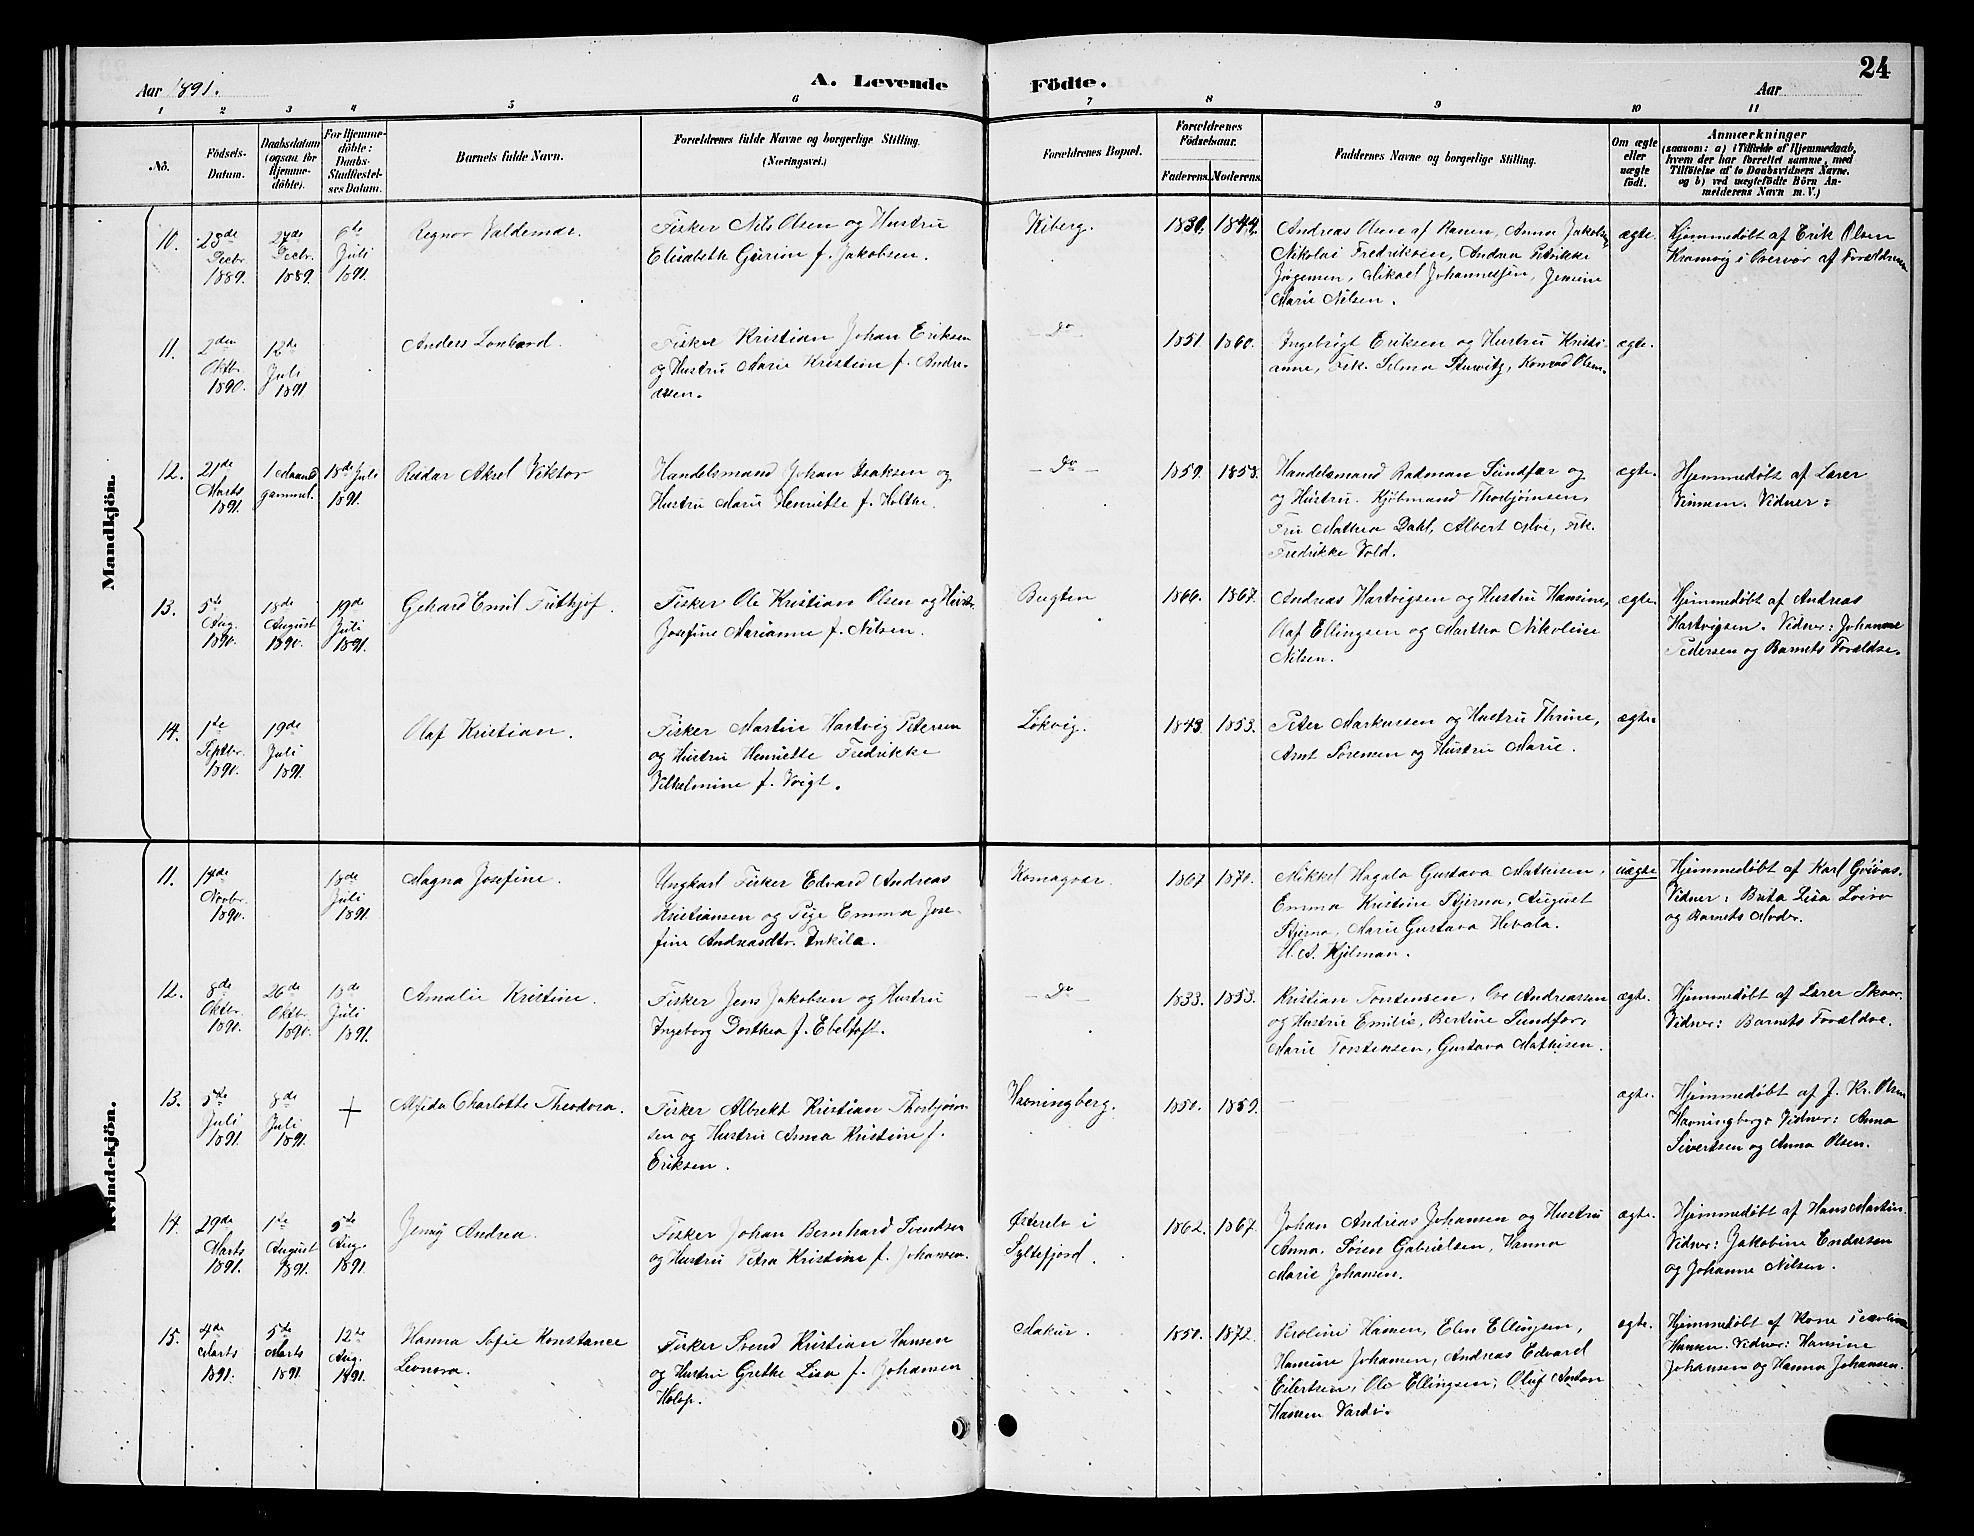 24
Aar 1891.
A. Levende Födte.
Aar
1 2 3 4 5 6 7 8 9 10 11
No.
Födsels-Datum.
Daabsdatum (ogsaa for Hjemmedöbte).
For Hjemmedöbte: Daabs-Stadfæstelses Datum.
Barnets fulde Navn.
Forældrenes fulde Navne og borgerlige Stilling. (Næringsvei.)
Forældrenes Bopæl.
Forældrenes Födselsaar.
Faderens. Moderens.
Faddernes Navne og borgerlige Stilling.
Om ægte eller uægte födt.
Anmærkninger (saasom: a) i Tilfælde af Hjemmedaab, hvem der har forrettet samme, med Tilföielse af to Daabsvidners Navne, og b) ved uægtefödte Börn Anmelderens Navn m. V.)
Mandkjön.
10. 23de Decbr. 1889. 27de Decbr. 1889. 6te Juli 1891.
Regnor Valdemar.
Fisker Nils Olsen og Hustru
Elisabeth Gurine f. Jakobsen.
Kiberg. 1839. 1844.
Andreas Olsen af Ranen, Anna Jakobsen,
Nikolai Fredriksen, Andrea Petrikke
Jørgensen, Mikael Johannessen, Jensine
Marie Nilsen.
ægte.
Hjemmedøbt af Erik Olsen
Kramvig i Overvær af Forældrene
11. 2den Oktbr. 1890. 12te Juli 1891
Anders Lonbard.
Fisker Kristian Johan Eriksen
og Hustru Marie Kristine f. Andreassen.
- Do 1851. 1860.
Ingebrigt Eriksen og Hustru Kristianne,
Frk. Selma Sturvitz, Konrad Olsen.
ægte.
12. 21de Marts 1891. 1 Maaned gammel. 18de Juli 1891.
Reidar Aksel Viktor
Handelsmand Johan Isaksen og
Hustru Marie Henriette f. Holthe.
- Do - 1859. 1858.
Handelsmand Radman Sundfær og
og Hustru. Kjøbmand Thorbjørnsen,
Fru Mathea Dahl, Albert Moe, Frk.
Fredrikke Vold.
ægte.
Hjemmedøbt af Lærer
Vinmem. Vidner:
13. 5te Aug. 1890. 18de August 1890. 19de Juli 1891.
Gehard Emil Frithjof.
Fisker Ole Kristian Olsen og Hustr.
Josefine Marianne f. Nilsen.
Bugten 1866. 1867.
Andreas Hartvigsen og Hustru Hansine,
Olaf Ellingsen og Martha Nikoline
Nilsen.
ægte.
Hjemmedøbt af Andreas
Hartvigsen. Vidner: Johanne
Pedersen og Barnets Forældre.
14. 1te Septbr. 1890. 19de Juli 1891.
Olaf Kristian.
Fisker Martin Hartvig Petersen
og Hustru Henriette Fredrikke
Vilhelmine f. Voigt.
Løkvig. 1843. 1853.
Peter Markussen og Hustru Thrine,
Arnt Sørensen og Hustru Marie.
ægte.
Kvindekjön.
11. 14de Novbr. 1890. 18de Juli 1891.
Magna Josefine.
Ungkarl Fisker Edvard Andreas
Kristiansen og Pige Emma Josefine
Andreasdtr. Inkila.
Komagvær. 1867. 1870.
Mikkel Hagala Gustava Mathisen,
Emma Kristine Stjerna, August
Stjerna, Marie Gustava Hevala.
H. A. Kjelman.
uægte
Hjemmedøbt af Karl
Vidner: Brita Lisa Loivo
og Barnets Moder.
12. 8de Oktbr. 1890. 26de Oktbr. 1890. 18de Juli 1891.
Amalie Kristine.
Fisker Jens Jakobsen og Hustru
Ingeborg Dorthea f. Ebeltoft.
- Do - 1833. 1853.
Kristian Torstensen, Ove Andreassen
og Hustru Emilie, Bertine Sundfær,
Marie Torstensen, Gustava Mathisen.
ægte.
Hjemmedøbt af Lærer Skaar.
Vidner: Barnets Forældre.
13. 5te Juli 1891. 8de Juli 1891. +
Alfida Charlotte Theodora.
Fisker Albrekt Kristian Thorbjørnsen
og Hustru Anna Kristine f.
Eriksen.
Havningberg. 1850. 1859.
ægte.
Hjemmedøbt af J. Kr. Olsen
Havningberg. Vidner: Anna
Sivertsen og Anna Olsen.
14. 29de Marts 1891. 1te August 1891. 5te Aug. 1891.
Jenny Andrea.
Fisker Johan Bernhard Svendsen
og Hustru Petra Kristine f. Johansen.
Østerelv i
Syltefjord. 1862. 1867.
Johan Andreas Johansen og Hustru
Anna. Søren Gabrielsen, Hanna
Marie Johansen.
ægte.
Hjemmedøbt af Hans Martin.
Vidner: Jakobine Endresen
og Johanne Nilsen.
15. 4de Marts 1891. 5te Marts 1891 12te Aug. 1891.
Hanna Sofie Konstance
Leonora.
Fisker Svend Kristian Hansen
og Hustru Grethe Lisa f. Johansen
Makur. 1850. 1872.
Peroline Hansen, Elen Ellingsen,
Hansine Johansen, Andreas Edvard
Eilertsen, Ole Ellingsen, Oluf Anton
Hansen Vardø.
ægte.
Hjemmedøbt af Kone
Hansen. Vidner: Hansine
Johansen og Hanna Johansen.